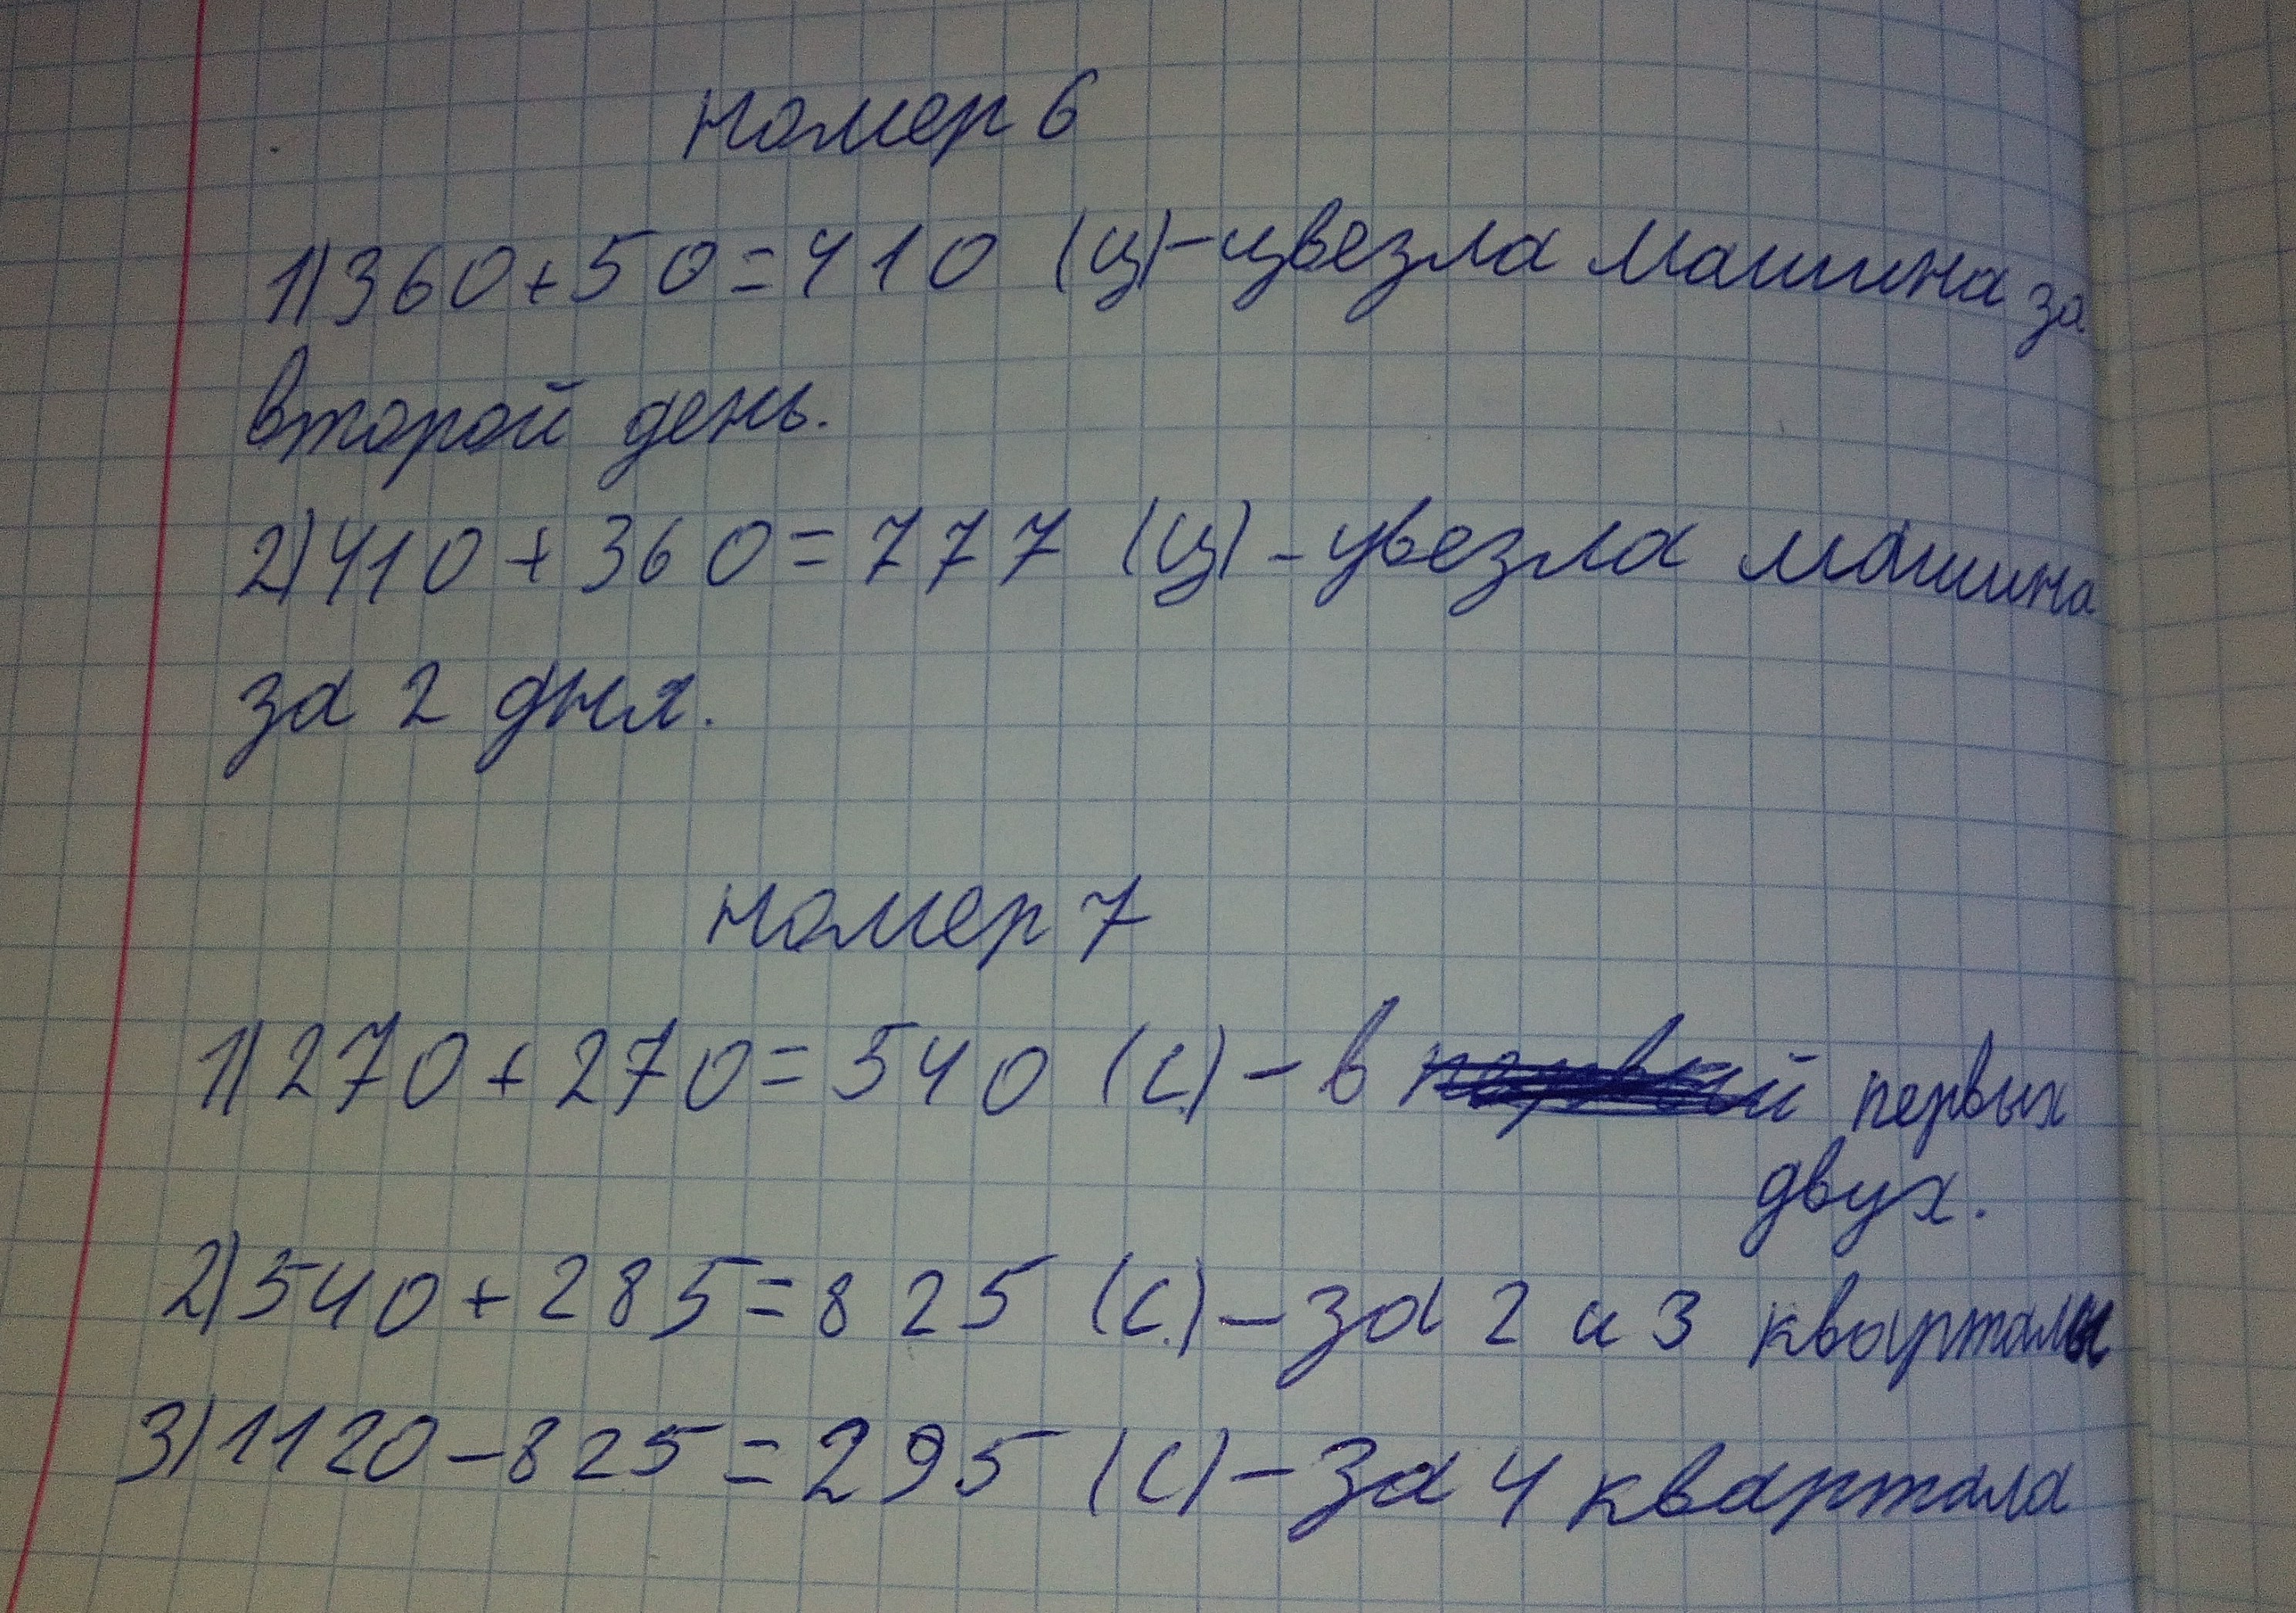 номер 6
1) 360 + 50 = 410 (ц) - увезла машина за
второй день.
2) 410 + 360 = 777 (ц) - увезла машина
за 2 дня.
номер 7
1) 270 + 270 = 540 (с.) - в первых
двух.
2) 540 + 285 = 825 (с.) - за 2 и 3 кварталы
3) 1120 - 825 = 295 (с) - за 4 квартала